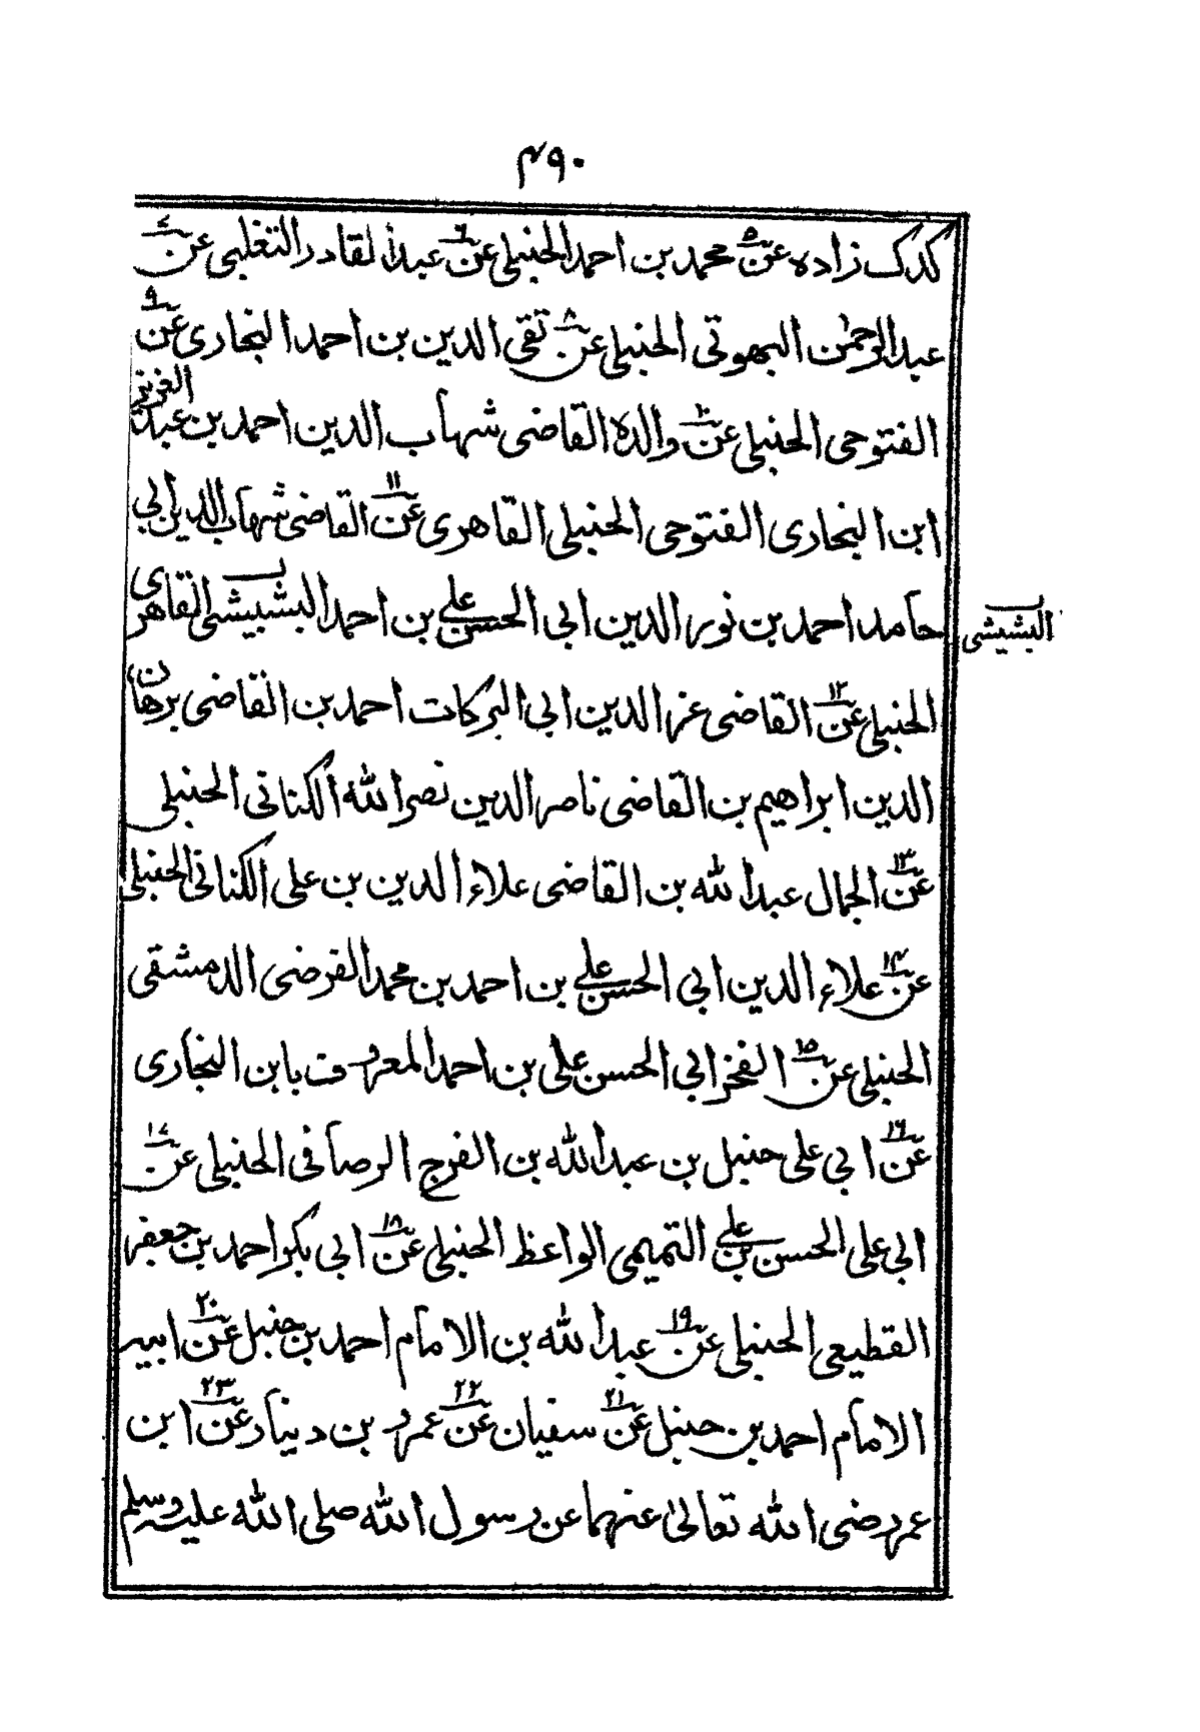 ۴۹۰
كدك زاده عن۵ محمد بن احمد الحنبلى عن۶ عبد القادر التغلبى عن۷
عبد الرحمٰن البهوتى الحنبلى عن۸ تقى الدين بن احمد النجارى عن۹
الفتوحى الحنبلى عن۱۰ والده القاضى شهاب الدين احمد بن عبد العزيز
ابن النجارى الفتوحى الحنبلى القاهرى عن۱۱ القاضى شهاب الدين ابى
حامد احمد بن نور الدين ابى الحسن على بن احمد البشبيشى القاهرى
البشبيشى
الحنبلى عن۱۲ القاضى عز الدين ابى البركات احمد بن القاضى برهان
الدين ابراهيم بن القاضى ناصر الدين نصر الله الكنانى الحنبلى
عن۱۳ الجمال عبد الله بن القاضى علاء الدين بن على الكنانى الحنبلى
عن۱۴ علاء الدين ابى الحسن على بن احمد بن محمد الفرضى الدمشقى
الحنبلى عن۱۵ الفخر ابى الحسن على بن احمد المعروف بابن النجارى
عن۱۶ ابى على حنبل بن عبد الله بن الفرج الرصافى الحنبلى عن۱۷
ابى على الحسن بن على التميمى الواعظ الحنبلى عن۱۸ ابى بكر احمد بن جعفر
القطيعى الحنبلى عن۱۹ عبد الله بن الامام احمد بن حنبل عن۲۰ ابيه
الامام احمد بن حنبل عن۲۱ سفيان عن۲۲ عمرو بن دينار عن۲۳ ابن
عمر رضى الله تعالىٰ عنهما عن رسول الله صلى الله عليه وسلم